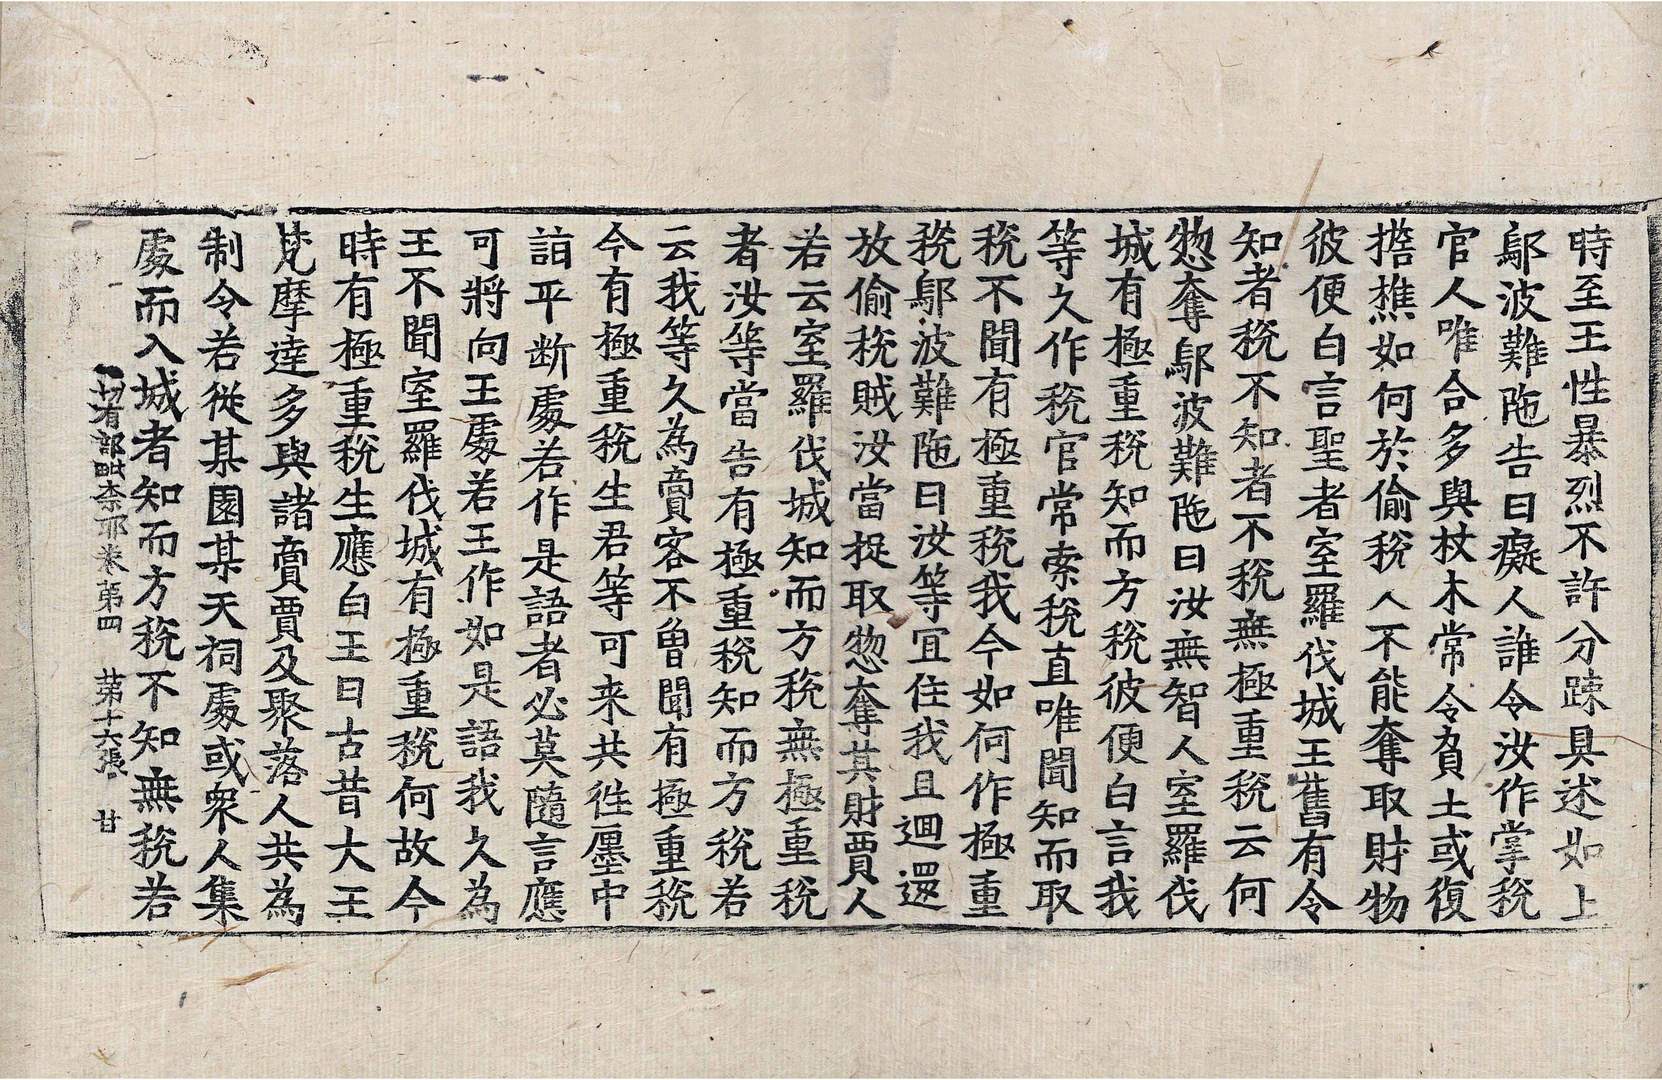 時至王性暴烈不許分踈具述如上
鄔波難陁告曰癡人誰令汝作掌稅
官人唯合多與杖木常令負土或復
擔樵如何於偷稅人不能奪取財物
彼便白言聖者室羅伐城王舊有令
知者稅不知者不稅無極重稅云何
㧾奪鄔波難陁曰汝無智人室羅伐
城有極重稅知而方稅彼便白言我
等久作稅官常索稅直唯聞知而取
稅不聞有極重稅我今如何作極重
稅鄔波難陁曰汝等冝住我且迴還
放偷稅賊汝當捉取㧾奪其財賈人
若云室羅伐城知而方稅無極重稅
者汝等當告有極重稅知而方稅若
云我等久為賣客不曾聞有極重稅
今有極重稅生君等可来共徃㕓中
詣平断處若作是語者必莫隨言應
可將向王處若王作如是語我久為
王不聞室羅伐城有極重稅何故今
時有極重稅生應白王曰古昔大王
梵摩達多與諸賣賈及聚落人共為
制令若從某園某天祠處或衆人集
處而入城者知而方稅不知無稅若
一切有部毗奈耶卷第四 苐十六張 甘